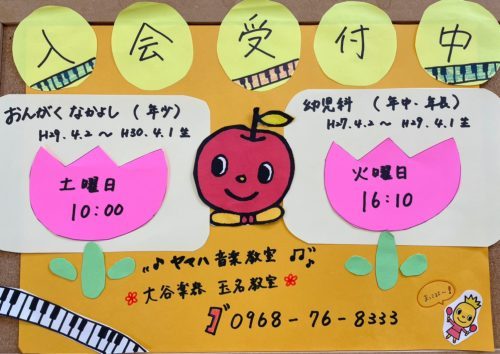 入会受付中
おんがくなかよし (年少)
H29.4.2 〜 H30.4.1生
土曜日
10:00
幼児科 (年中・年長)
H27.4.2 〜 H29.4.1生
火曜日
16:10
ヤマハ音楽教室
大谷楽器 玉名教室
0968-76-8333